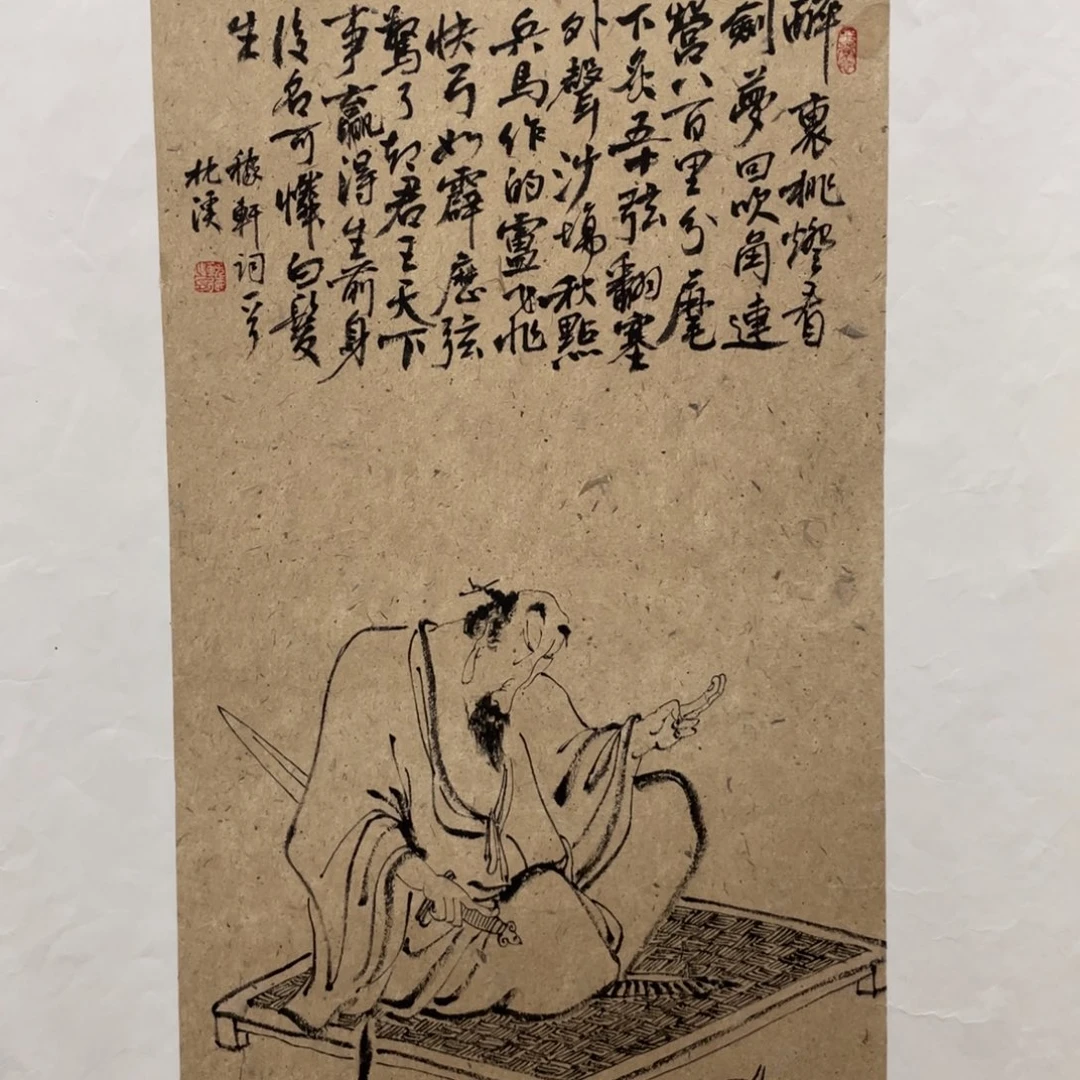 醉裏挑燈看
劍夢回吹角連
營八百里分麾
下炙五十弦翻塞
外聲沙場秋點
兵馬作的盧飛
快弓如霹靂弦
驚了却君王天下
事贏得生前身
後名可憐白髮
生
稼軒詞一首
溪